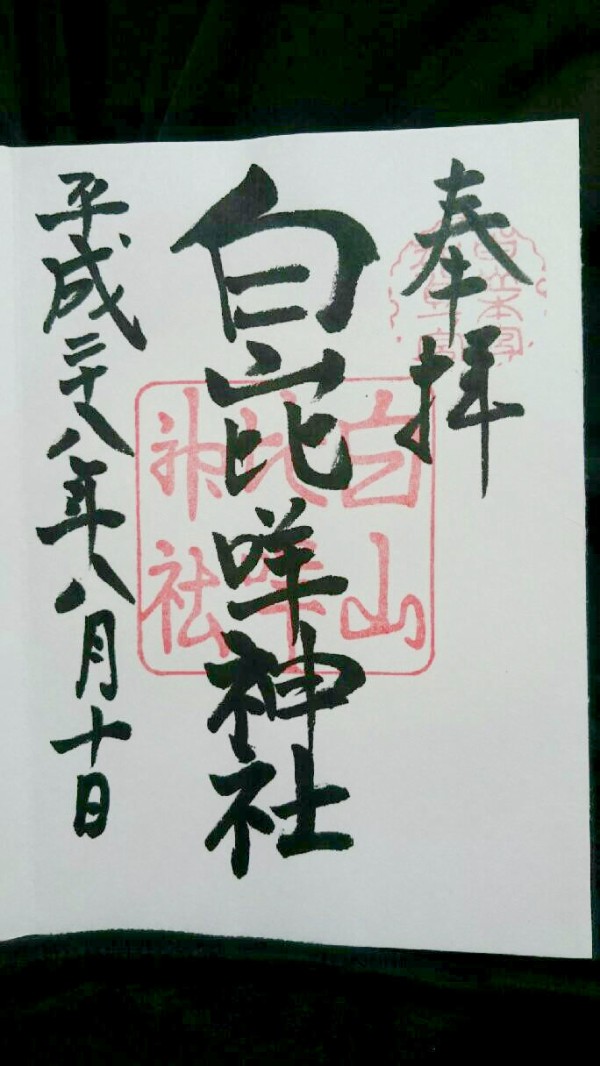 奉拝
白山比咩神社
平成二十八年八月十日
白山
比咩
神社